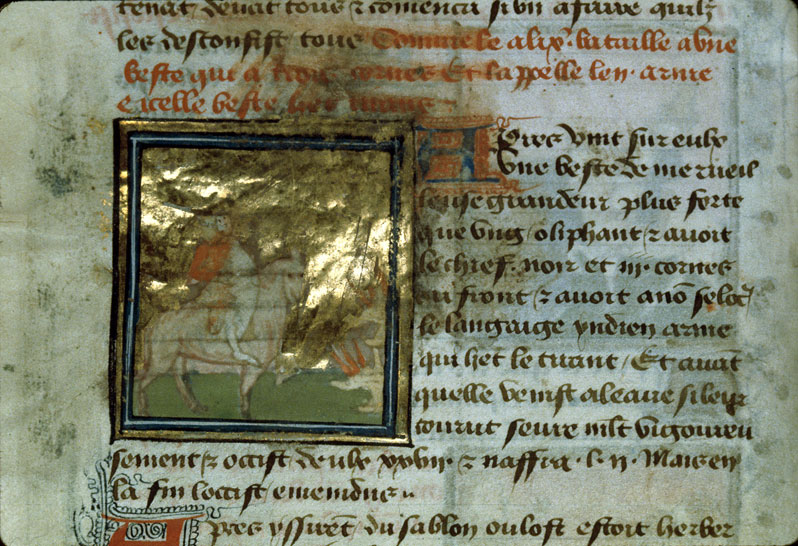 tenāt deuāt tous ⁊ comenca si vn afaire quilz
les desconfist tous Comme le alix̄. bataille a vne
beste qui a trois cornes Et lappelle len. arme
e icelle beste
Apres vint sur eulx
vne beste de merueil
leuse grandeur plus forte
que vng oliphant ⁊ auoit
le chief. noir et .iii. cornes
ou front ⁊ auoit a nō selōc
le langaige yndien arme
qui het le tirant / Et auāt
quelle venist a leaue si leur
courut seure mlt vigoureu
sement ⁊ occist deulx xxviii ⁊ naffra .l. ii. Mais en
la fin loccist emenidus
Apres yssirēt du sablon ou lost estoit herber